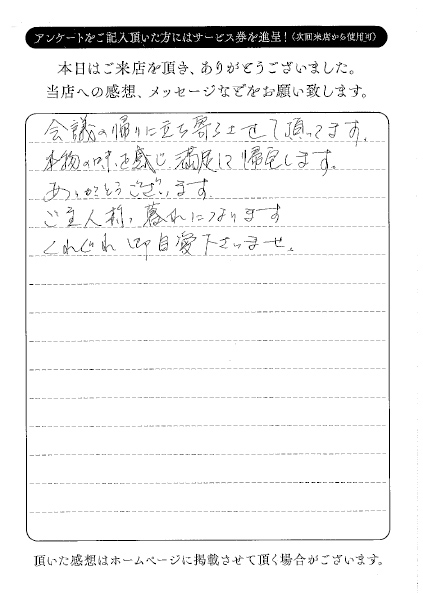 アンケートをご記入頂いた方にはサービス券を進呈！（次回来店から使用可）
本日はご来店を頂き、ありがとうございました。
当店への感想、メッセージなどをお願い致します。
会議の帰りに立ち寄らせて頂ってます。
本物の味を感じ満足して帰宅します。
ありがとうございます
ご主人様、暮れになります
くれぐれ 御自愛下さいませ。
頂いた感想はホームページに掲載させて頂く場合がございます。